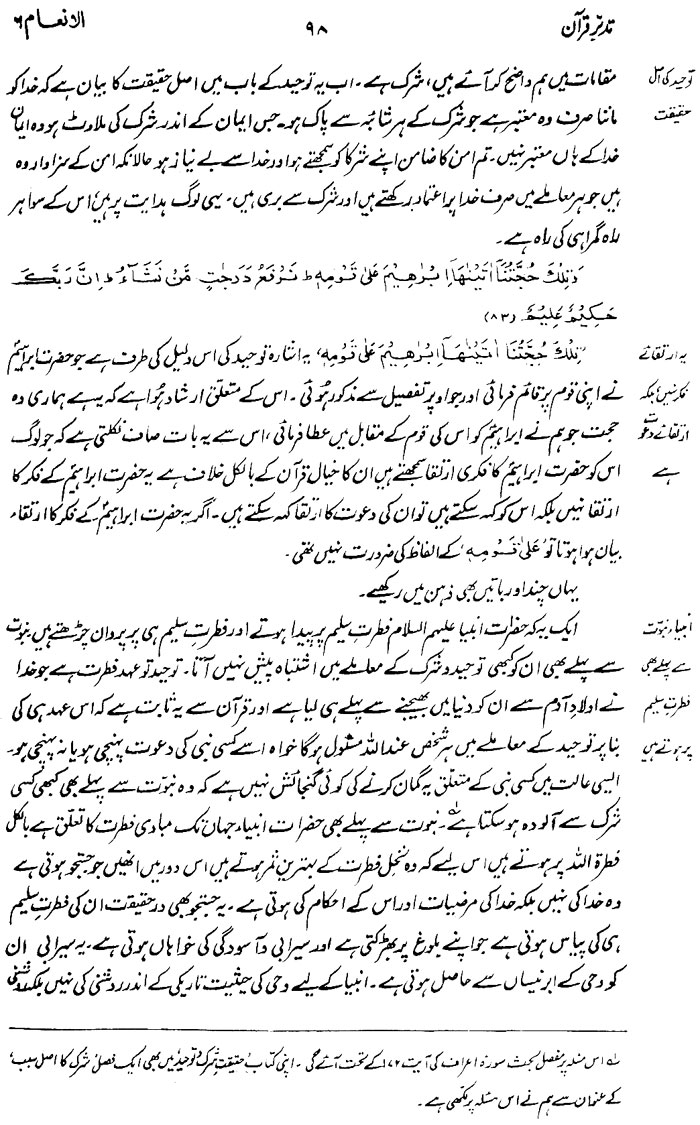 تدبرِ قرآن ۹۸ الانعام ۶
توحید کی اصل
حقیقت
مقامات میں ہم واضح کر آئے ہیں، شرک ہے۔ اب یہ توحید کے باب میں اصل حقیقت کا بیان ہے کہ خدا کو
ماننا صرف وہ معتبر ہے جو شرک کے ہر شائبہ سے پاک ہو۔ جس ایمان کے اندر شرک کی ملاوٹ ہو وہ ایمان
خدا کے ہاں معتبر نہیں۔ تم امن کا ضامن اپنے شرکا کو سمجھتے ہو اور خدا سے بے نیاز ہو حالانکہ امن کے سزاوار وہ
ہیں جو ہر معاملے میں صرف خدا پر اعتماد رکھتے ہیں اور شرک سے بری ہیں۔ یہی لوگ ہدایت پر ہیں، اس کے سوا ہر
راہ گمراہی کی راہ ہے۔
وَتِلْكَ حُجَّتُنَآ اٰتَيْنٰهَآ اِبْرٰهِيْمَ عَلٰى قَوْمِهٖ ط نَرْفَعُ دَرَجٰتٍ مَّنْ نَّشَآءُ ط اِنَّ رَبَّكَ
حَكِيْمٌ عَلِيْمٌ (۸۳)
یہ ارتقائے
فکر نہیں بلکہ
ارتقائے دعوت
ہے
’تِلْكَ حُجَّتُنَآ اٰتَيْنٰهَآ اِبْرٰهِيْمَ عَلٰى قَوْمِهٖ‘، یہ اشارہ توحید کی اس دلیل کی طرف ہے جو حضرت ابراہیمؑ
نے اپنی قوم پر قائم فرمائی اور جو اوپر تفصیل سے مذکور ہوئی۔ اس کے متعلق ارشاد ہوا ہے کہ یہ ہے ہماری وہ
حجت جو ہم نے ابراہیمؑ کو اس کی قوم کے مقابل میں عطا فرمائی، اس سے یہ بات صاف نکلتی ہے کہ جو لوگ
اس کو حضرت ابراہیمؑ کا فکری ارتقا سمجھتے ہیں ان کا خیال قرآن کے بالکل خلاف ہے یہ حضرت ابراہیمؑ کے فکر کا
ارتقا نہیں بلکہ اس کو کہہ سکتے ہیں تو ان کی دعوت کا ارتقا کہہ سکتے ہیں۔ اگر یہ حضرت ابراہیمؑ کے فکر کا ارتقاء
بیان ہوا ہوتا تو ’عَلٰى قَوْمِهٖ‘ کے الفاظ کی ضرورت نہیں تھی۔
یہاں چند اور باتیں بھی ذہن میں رکھیے۔
انبیاء نبوت
سے پہلے بھی
فطرتِ سلیم
پر ہوتے ہیں
ایک یہ کہ حضرات انبیا علیہم السلام فطرتِ سلیم پر پیدا ہوتے اور فطرتِ سلیم ہی پر پروان چڑھتے ہیں، نبوت
سے پہلے بھی ان کو کبھی توحید و شرک کے معاملے میں اشتباہ پیش نہیں آتا۔ توحید تو عہد فطرت ہے جو خدا
نے اولادِ آدم سے ان کو دنیا میں بھیجنے سے پہلے ہی لیا ہے اور قرآن سے یہ ثابت ہے کہ اس عہد ہی کی
بنا پر توحید کے معاملے میں ہر شخص عند اللہ مسئول ہوگا خواہ اسے کسی نبی کی دعوت پہنچی ہو یا نہ پہنچی ہو۔
ایسی حالت میں کسی نبی کے متعلق یہ گمان کرنے کی کوئی گنجائش نہیں ہے کہ وہ نبوت سے پہلے بھی کبھی کسی
شرک سے آلودہ ہو سکتا ہے۱؎۔ نبوت سے پہلے بھی حضرات انبیاء جہاں تک مبادی فطرت کا تعلق ہے بالکل
فطرۃ اللہ پر ہوتے ہیں اس لیے کہ وہ نخلِ فطرت کے بہترین ثمر ہوتے ہیں اس دور میں انھیں جو جستجو ہوتی ہے
وہ خدا کی نہیں بلکہ خدا کی مرضیات اور اس کے احکام کی ہوتی ہے۔ یہ جستجو بھی در حقیقت ان کی فطرتِ سلیم
ہی کی پیاس ہوتی ہے جو اپنے بلوغ پر بھڑکتی ہے اور سیرابی و آسودگی کی خواہاں ہوتی ہے۔ یہ سیرابی ان
کو وحی کے ابر نیساں سے حاصل ہوتی ہے۔ انبیا کے لیے وحی کی حیثیت تاریکی کے اندر روشنی کی نہیں بلکہ روشنی
۱؎ اس مسئلہ پر مفصل بحث سورۂ اعراف کی آیت ۱۷۲ کے تحت آئے گی۔ اپنی کتاب ’حقیقتِ شرک و توحید‘ میں بھی ایک فصل ’شرک کا اصل سبب‘،
کے عنوان سے ہم نے اس مسئلہ پر لکھی ہے۔